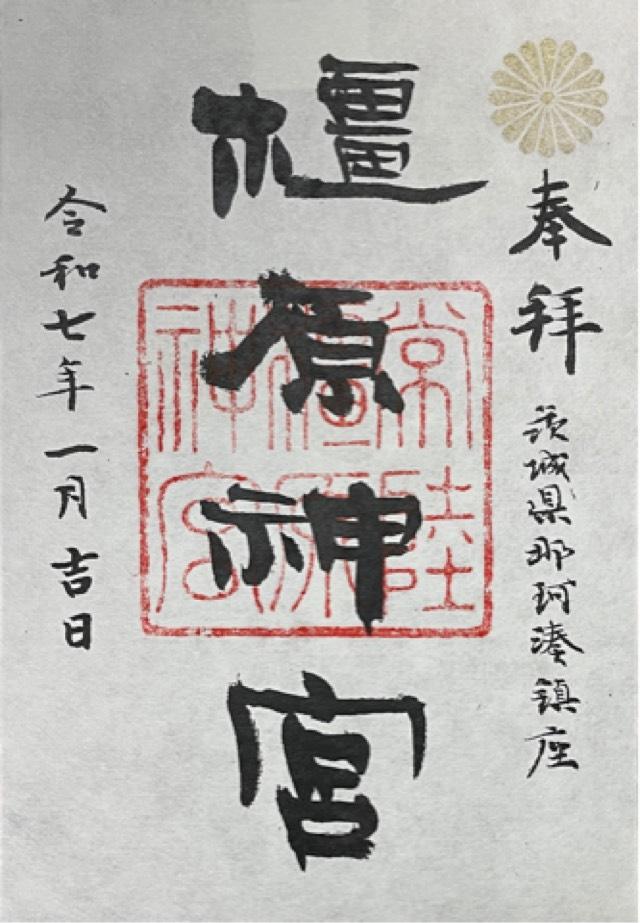 奉拝
茨城県那珂湊鎮座
橿原神宮
常陸
橿原
神宮
令和七年一月吉日